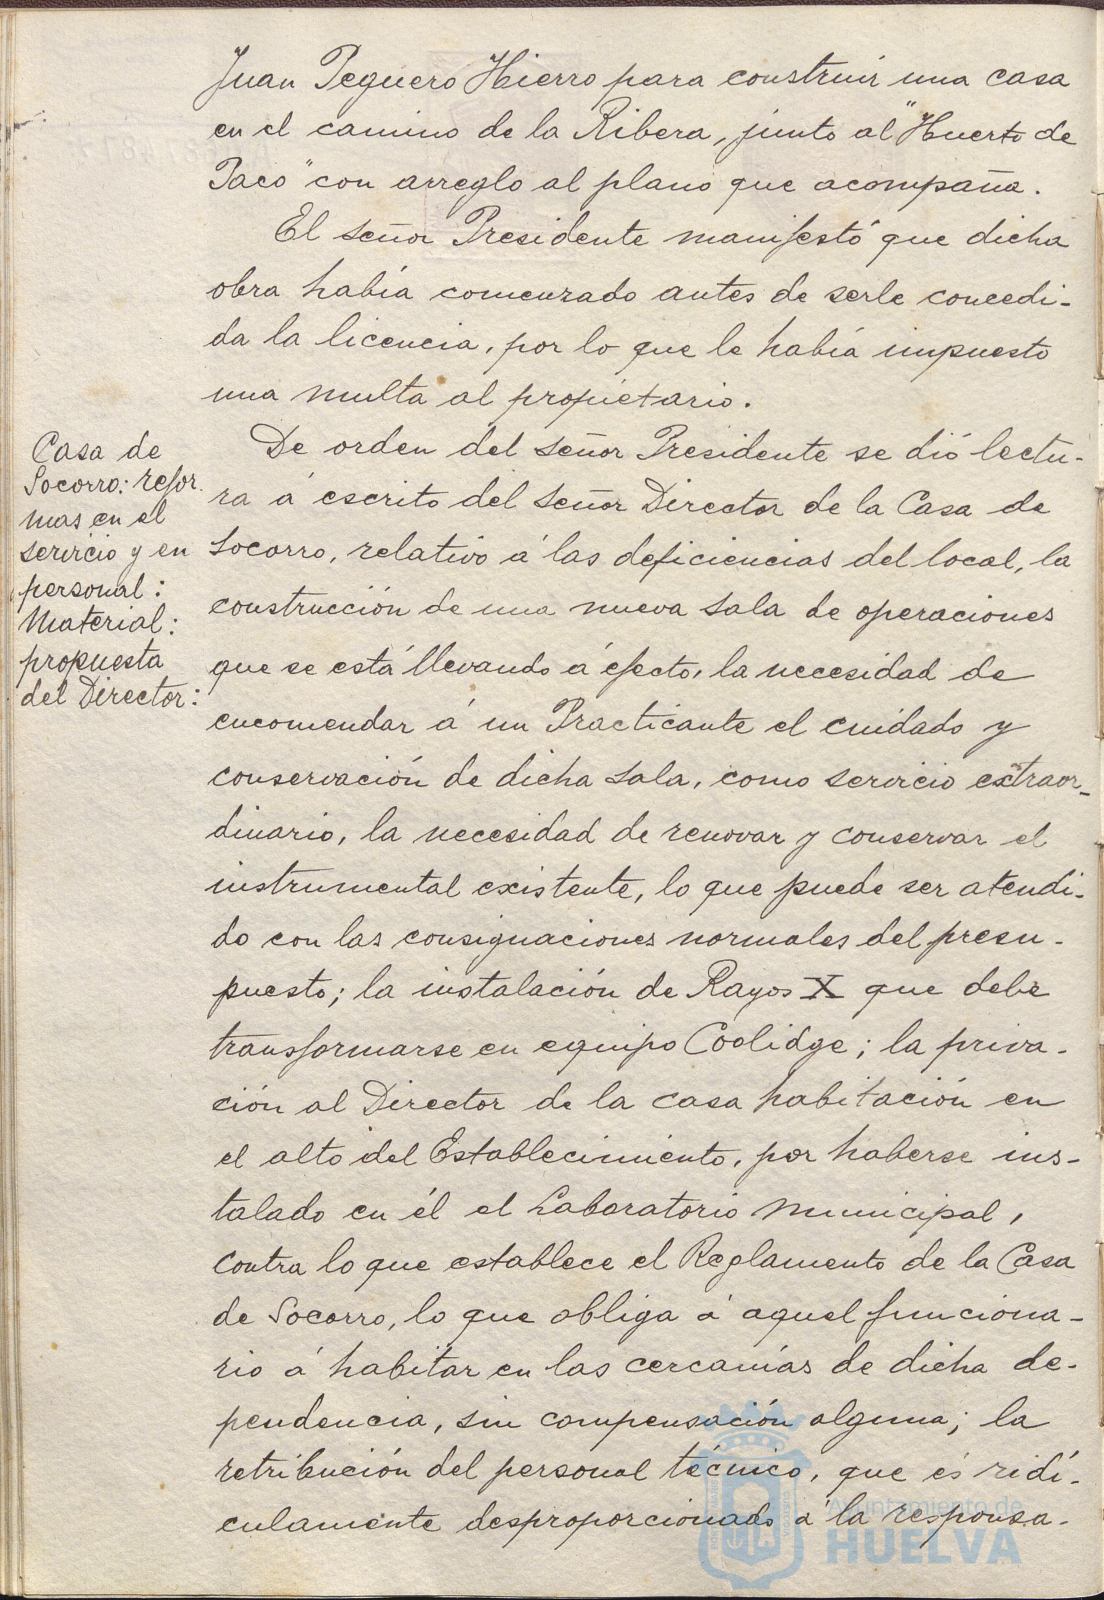 Juan Peguero Hierro para construir una casa
en el camino de la Ribera, junto al "Huerto de
Paco" con arreglo al plano que acompaña.
El señor Presidente manifestó que dicha
obra había comenzado antes de serle concedi-
da la licencia, por lo que le había impuesto
una multa al propietario.
Casa de
Socorro: refor-
mas en el
servicio y en
personal:
Material:
propuesta
del Director:
De orden del señor Presidente se dió lectu-
ra á escrito del señor Director de la Casa de
Socorro, relativo á las deficiencias del local, la
construcción de una nueva sala de operaciones
que se está llevando á efecto, la necesidad de
encomendar á un Practicante el cuidado y
conservación de dicha sala, como servicio extraor-
dinario, la necesidad de renovar y conservar el
instrumental existente, lo que puede ser atendi-
do con las consignaciones normales del presu-
puesto; la instalación de Rayos X que debe
transformarse en equipo Coolidge; la priva-
ción al Director de la casa habitación en
el alto del Establecimiento, por haberse ins-
talado en él el Laboratorio Municipal,
contra lo que establece el Reglamento de la Casa
de Socorro, lo que obliga á aquel funciona-
rio á habitar en las cercanías de dicha de-
pendencia, sin compensación alguna; la
retribución del personal técnico, que es ridí-
culamente desproporcionado á la responsa-
Ayuntamiento de
HUELVA